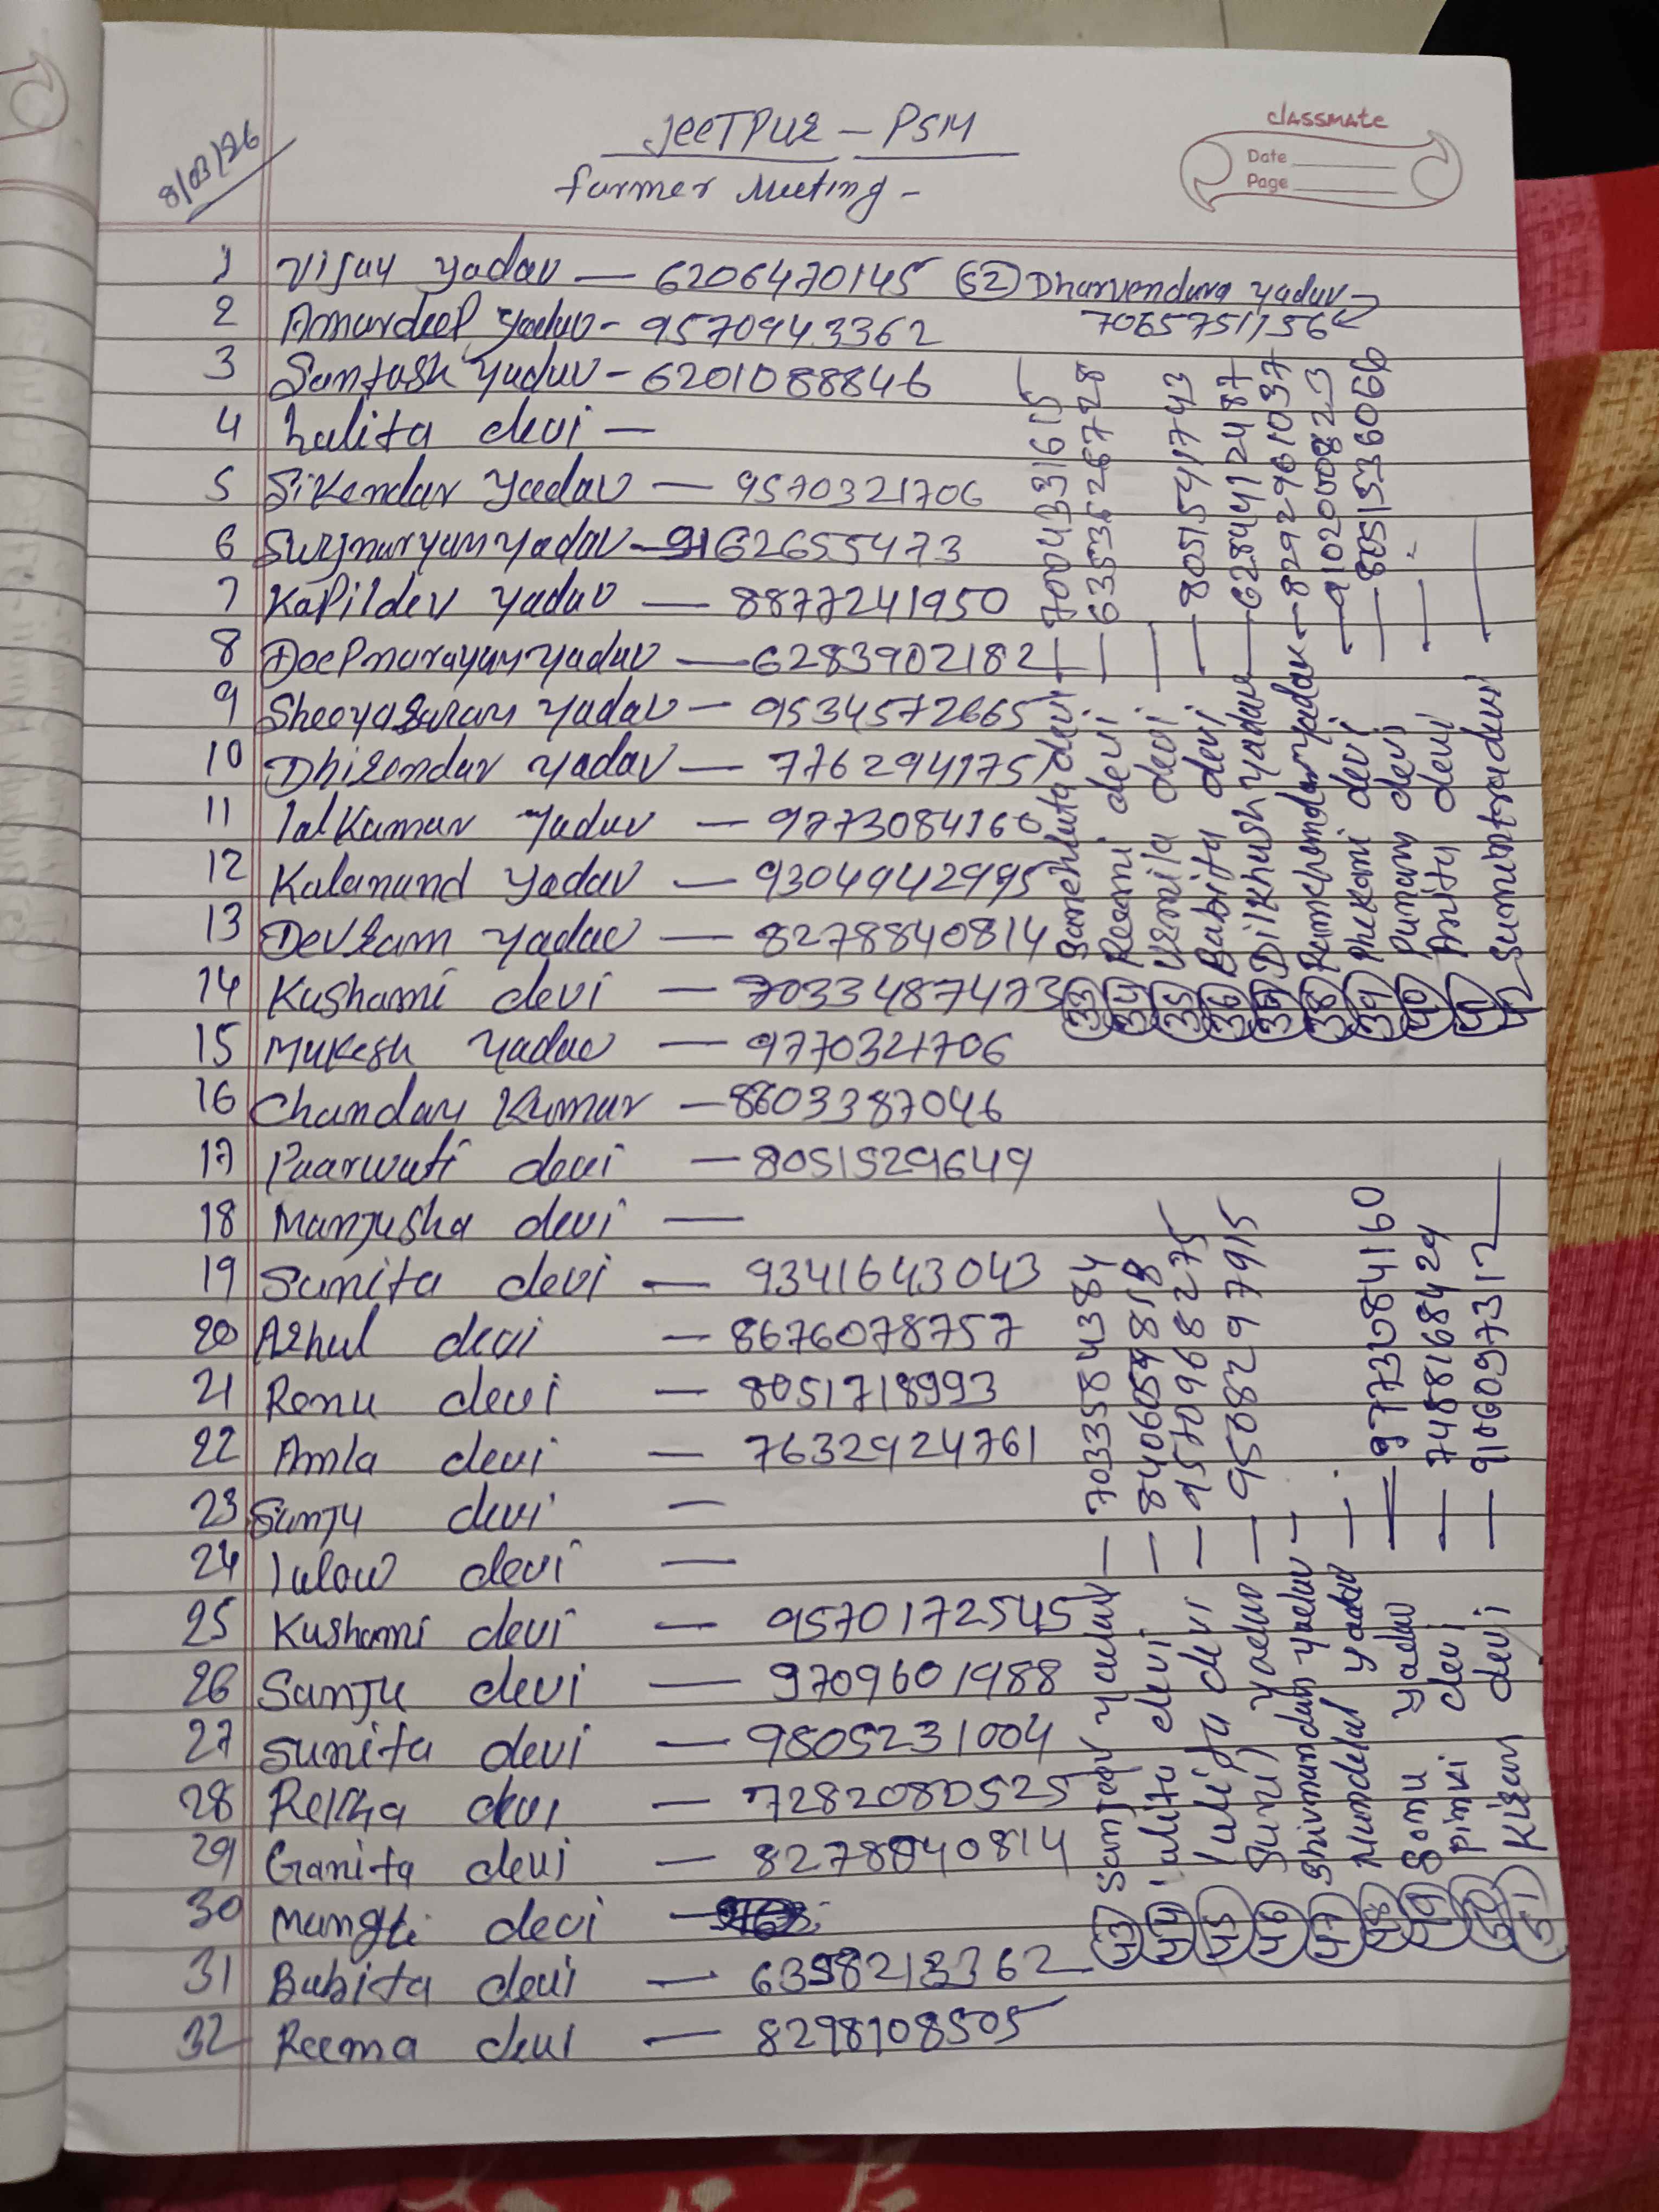 8/03/26
JEETPUR - PSM
farmer Meeting -
classmate
Date
Page
1 Vijay yadav — 6206470145
52 Dharvendura yadav →
7065751156
2 Amardeep yadav - 9570943362
3 Santosh yadav - 6201088846
4 Lalita devi —
5 Sikendar yadav — 9570321706
6 Surjnaryan yadav - 9162655473
7 Kapildev yadav — 8877241950
8 Deepnarayan yadav — 6283902182
9 Sheoyasaran yadav — 9534572665
10 Dhirendar yadav — 7762941751
11 lalKamar yadav — 9773084160
12 Kalanand yadav — 9304942995
13 Devram yadav — 8278840814
14 Kushami devi — 7033487473
15 Mukesh yadav — 9770321706
16 Chandan Kumar — 8603387046
17 Paarwati devi — 8051529649
18 Manjusha devi —
19 Sunita devi — 9341643043
20 Arhul devi — 8676078757
21 Renu devi — 8051718993
22 Amla devi — 7632924761
23 Sunju devi —
24 lalow devi —
25 Kushami devi — 9570172545
26 Sanju devi — 9709601988
27 Sunita devi — 9805231004
28 Rekha devi — 7282080525
29 Ganita devi — 8278840814
30 devi —
31 Babita devi — 6398213362
32 Reema devi — 8298108505
33 Sanehluta devi — 7004331615
34 Reemi devi — 6353626728
35 Urmila devi —
36 Babita devi — 8051541743
37 Dilkhush yadav — 6284412487
38 Ramchandar yadav - 8292961037
39 Phekkani devi — 9102000823
40 Punam devi — 8051536066
41 Anita devi —
42 Sumintra devi —
43 Sanjeev yadav — 7033584384
44 lalita devi — 8406059818
45 lalita devi — 9570968275
46 Sunil yadav — 9508297915
47 Shivnandan yadav —
48 Nundelal yadav —
49 Sonu yadav — 9773084160
50 pinki devi — 7488168429
51 Kiran devi — 9106097312